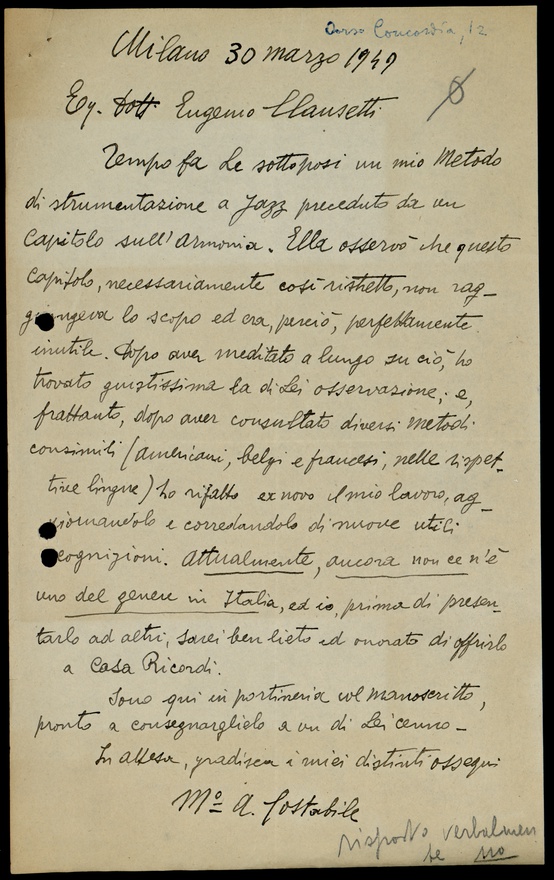 Corso Concordia, 12
Milano 30 marzo 1949
Eg. Dott. Eugenio Clausetti
Tempo fa Le sottoposi un mio Metodo
di strumentazione a Jazz preceduto da un
capitolo sull'armonia. Ella osservò che questo
capitolo, necessariamente così ristretto, non rag-
giungeva lo scopo ed era, perciò, perfettamente
inutile. Dopo aver meditato a lungo su ciò, ho
trovato giustissima la di Lei osservazione; e,
frattanto, dopo aver consultato diversi metodi
consimili (americani, belgi e francesi, nelle rispet-
tive lingue) ho rifatto ex novo il mio lavoro, ag-
giornandolo e corredandolo di nuove utili
cognizioni. Attualmente, ancora non ce n'è
uno del genere in Italia, ed io, prima di presen-
tarlo ad altri, sarei ben lieto ed onorato di offrirlo
a Casa Ricordi.
Sono qui in portineria col manoscritto,
pronto a consegnarglielo a un di Lei cenno -
In attesa, gradisca i miei distinti ossequi
Mo A. Costabile
risposto verbalmen
te no